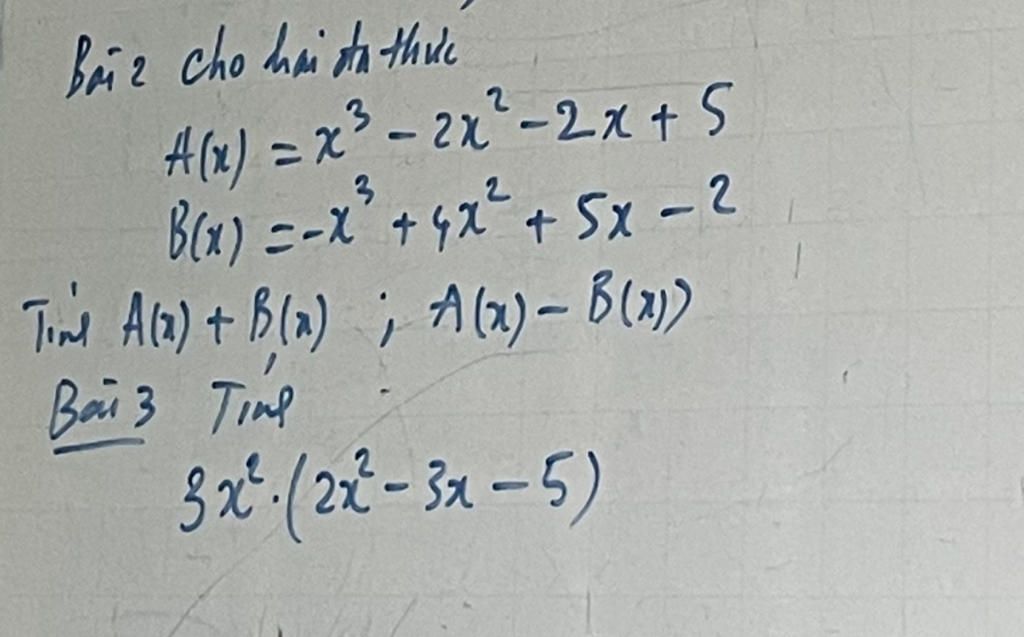 Bài 2 cho hai đa thức
A(x) = x³ - 2x² - 2x + 5
B(x) = -x³ + 4x² + 5x - 2
Tính A(x) + B(x) ; A(x) - B(x))
Bài 3 Tính
3x² . (2x² - 3x - 5)